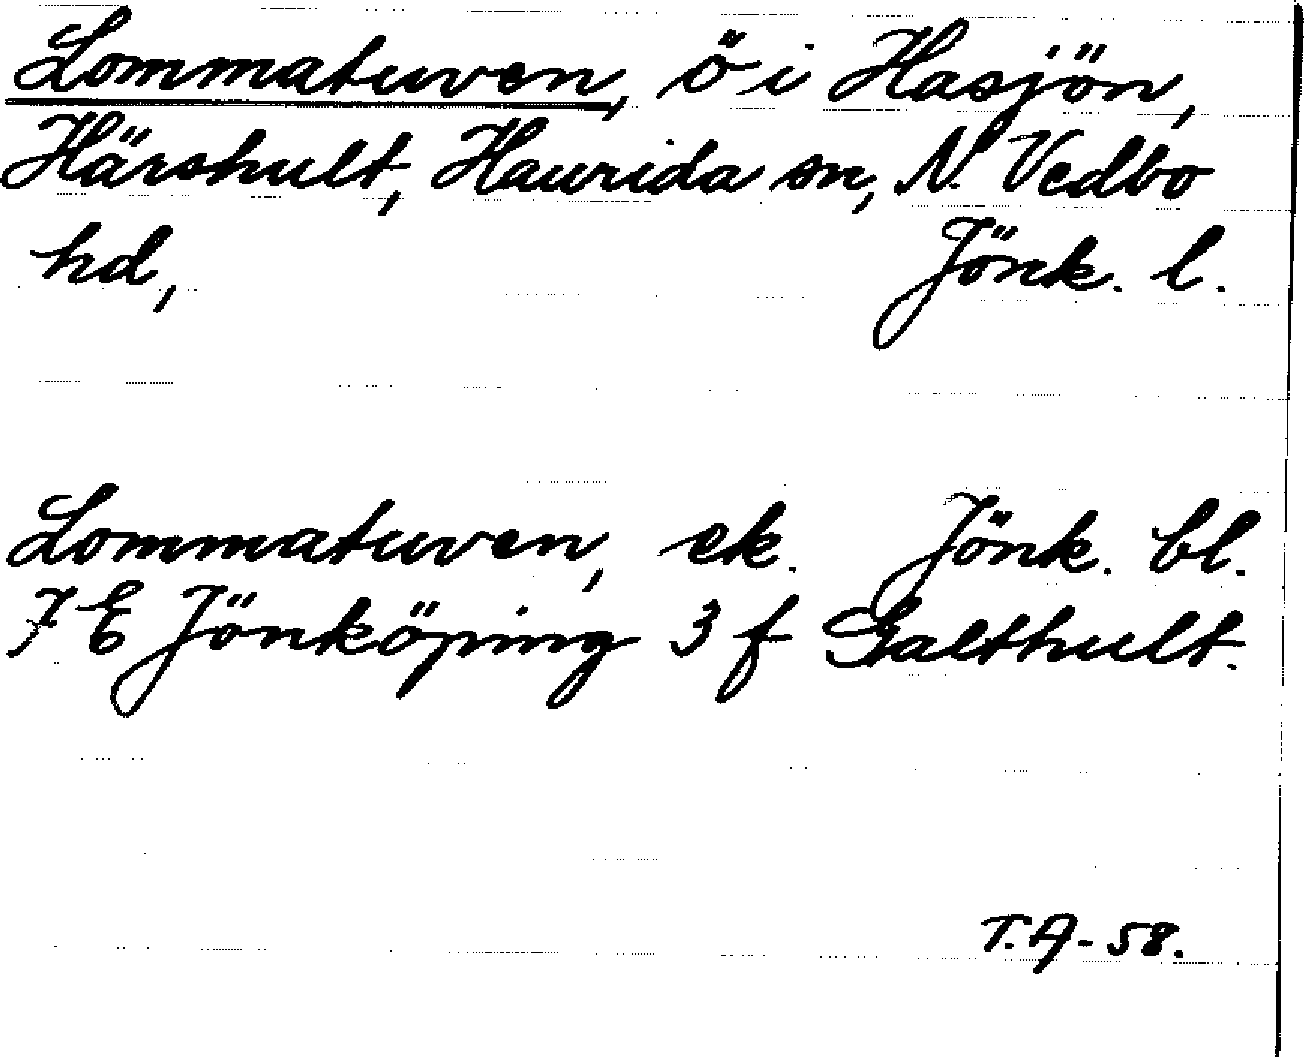 Lommatuven, ö i Hasjön,
Härshult, Haurida sn, N. Vedbo
hd, Jönk. l.
Lommatuven, ek. Jönk. bl.
7 E Jönköping 3 f Galthult.
T.A-58.